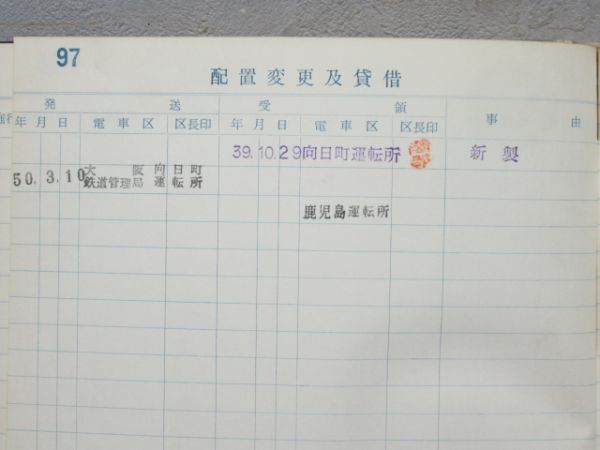 97
配置変更及貸借
発送 受領 事由
年月日 電車区 区長印 年月日 電車区 区長印
39.10.29 向日町運転所 新製
50.3.10 大阪鉄道管理局 向日町運転所
鹿児島運転所